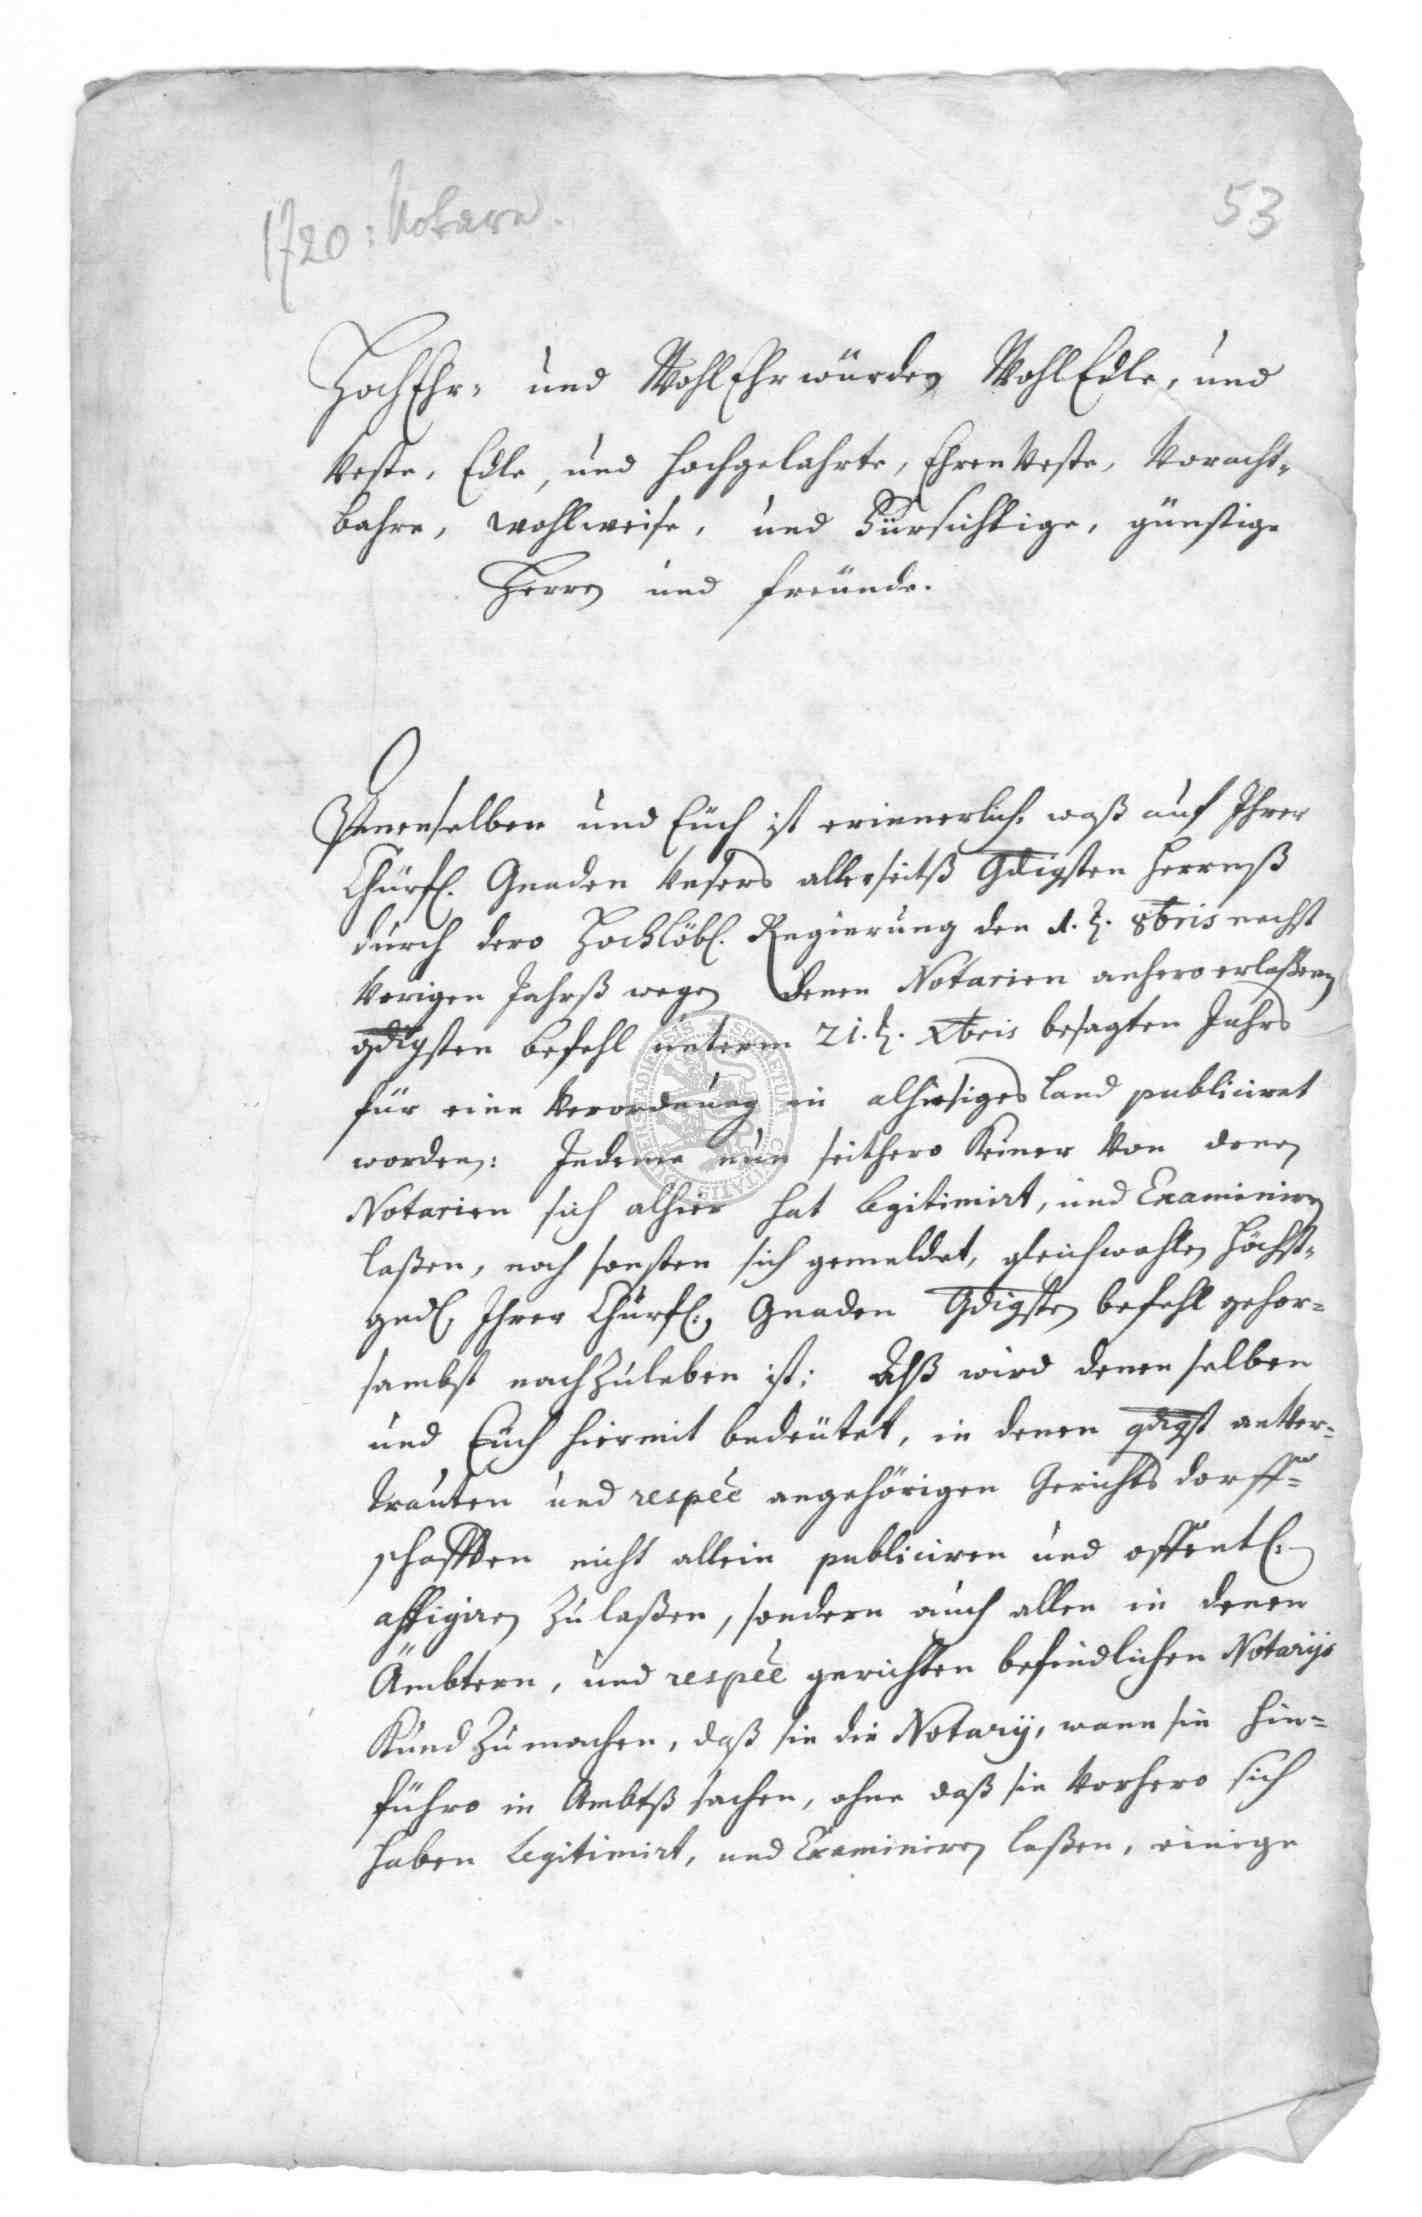 53
1720: Notare.
HochEhr- und WohlEhrwürden WohlEdle, und
Veste, Edle, und Hochgelahrte, EhrenVeste, Voracht-
bahre, wohlweise, und Fürsichtige, günstige
Herren und freünde.
Denenselben und Euch ist erinnerlich, waß auf Ihrer
Churfl. Gnaden Unsers allerseitß Gdigsten Herrenß
durch dero Hochlöbl. Regierung den 1.t. 8bris nechst
Vorigen Jahrß wegen denen Notarien anhero erlaßenen
gdigsten befehl unterm 21.t. Xbris besagten Jahrs
für eine Verordnung in alhiesiges Land publiciret
worden: Indeme nun seithero Keiner Von denen
Notarien sich alhier hat legitimirt, und Examiniren
laßen, noch sonsten sich gemeldet, gleichwohlen Höchst-
gedl. Ihrer Churfl. Gnaden Gdigsten befehl gehor-
sambst nachZuleben ist; Alß wird denenselben
und Euch hiermit bedeütet, in denen gdigst anVer-
trauten und respée angehörigen Gerichts dorff-
schafften nicht allein publiciren und offentl.
affigiren Zulaßen, sondern auch allen in denen
Ämbtern, und respée gerichten befindlichen Notarijs
Kund Zumachen, daß sie die Notarij, wann sie hin-
führo in Ambtß sachen, ohne daß sie Vorhero sich
haben Legitimirt, und Examiniren laßen, einige